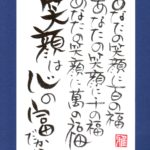 あなたの笑顔に百の福
あなたの笑顔に千の福
あなたの笑顔に萬の福
笑顔は心の富
だから